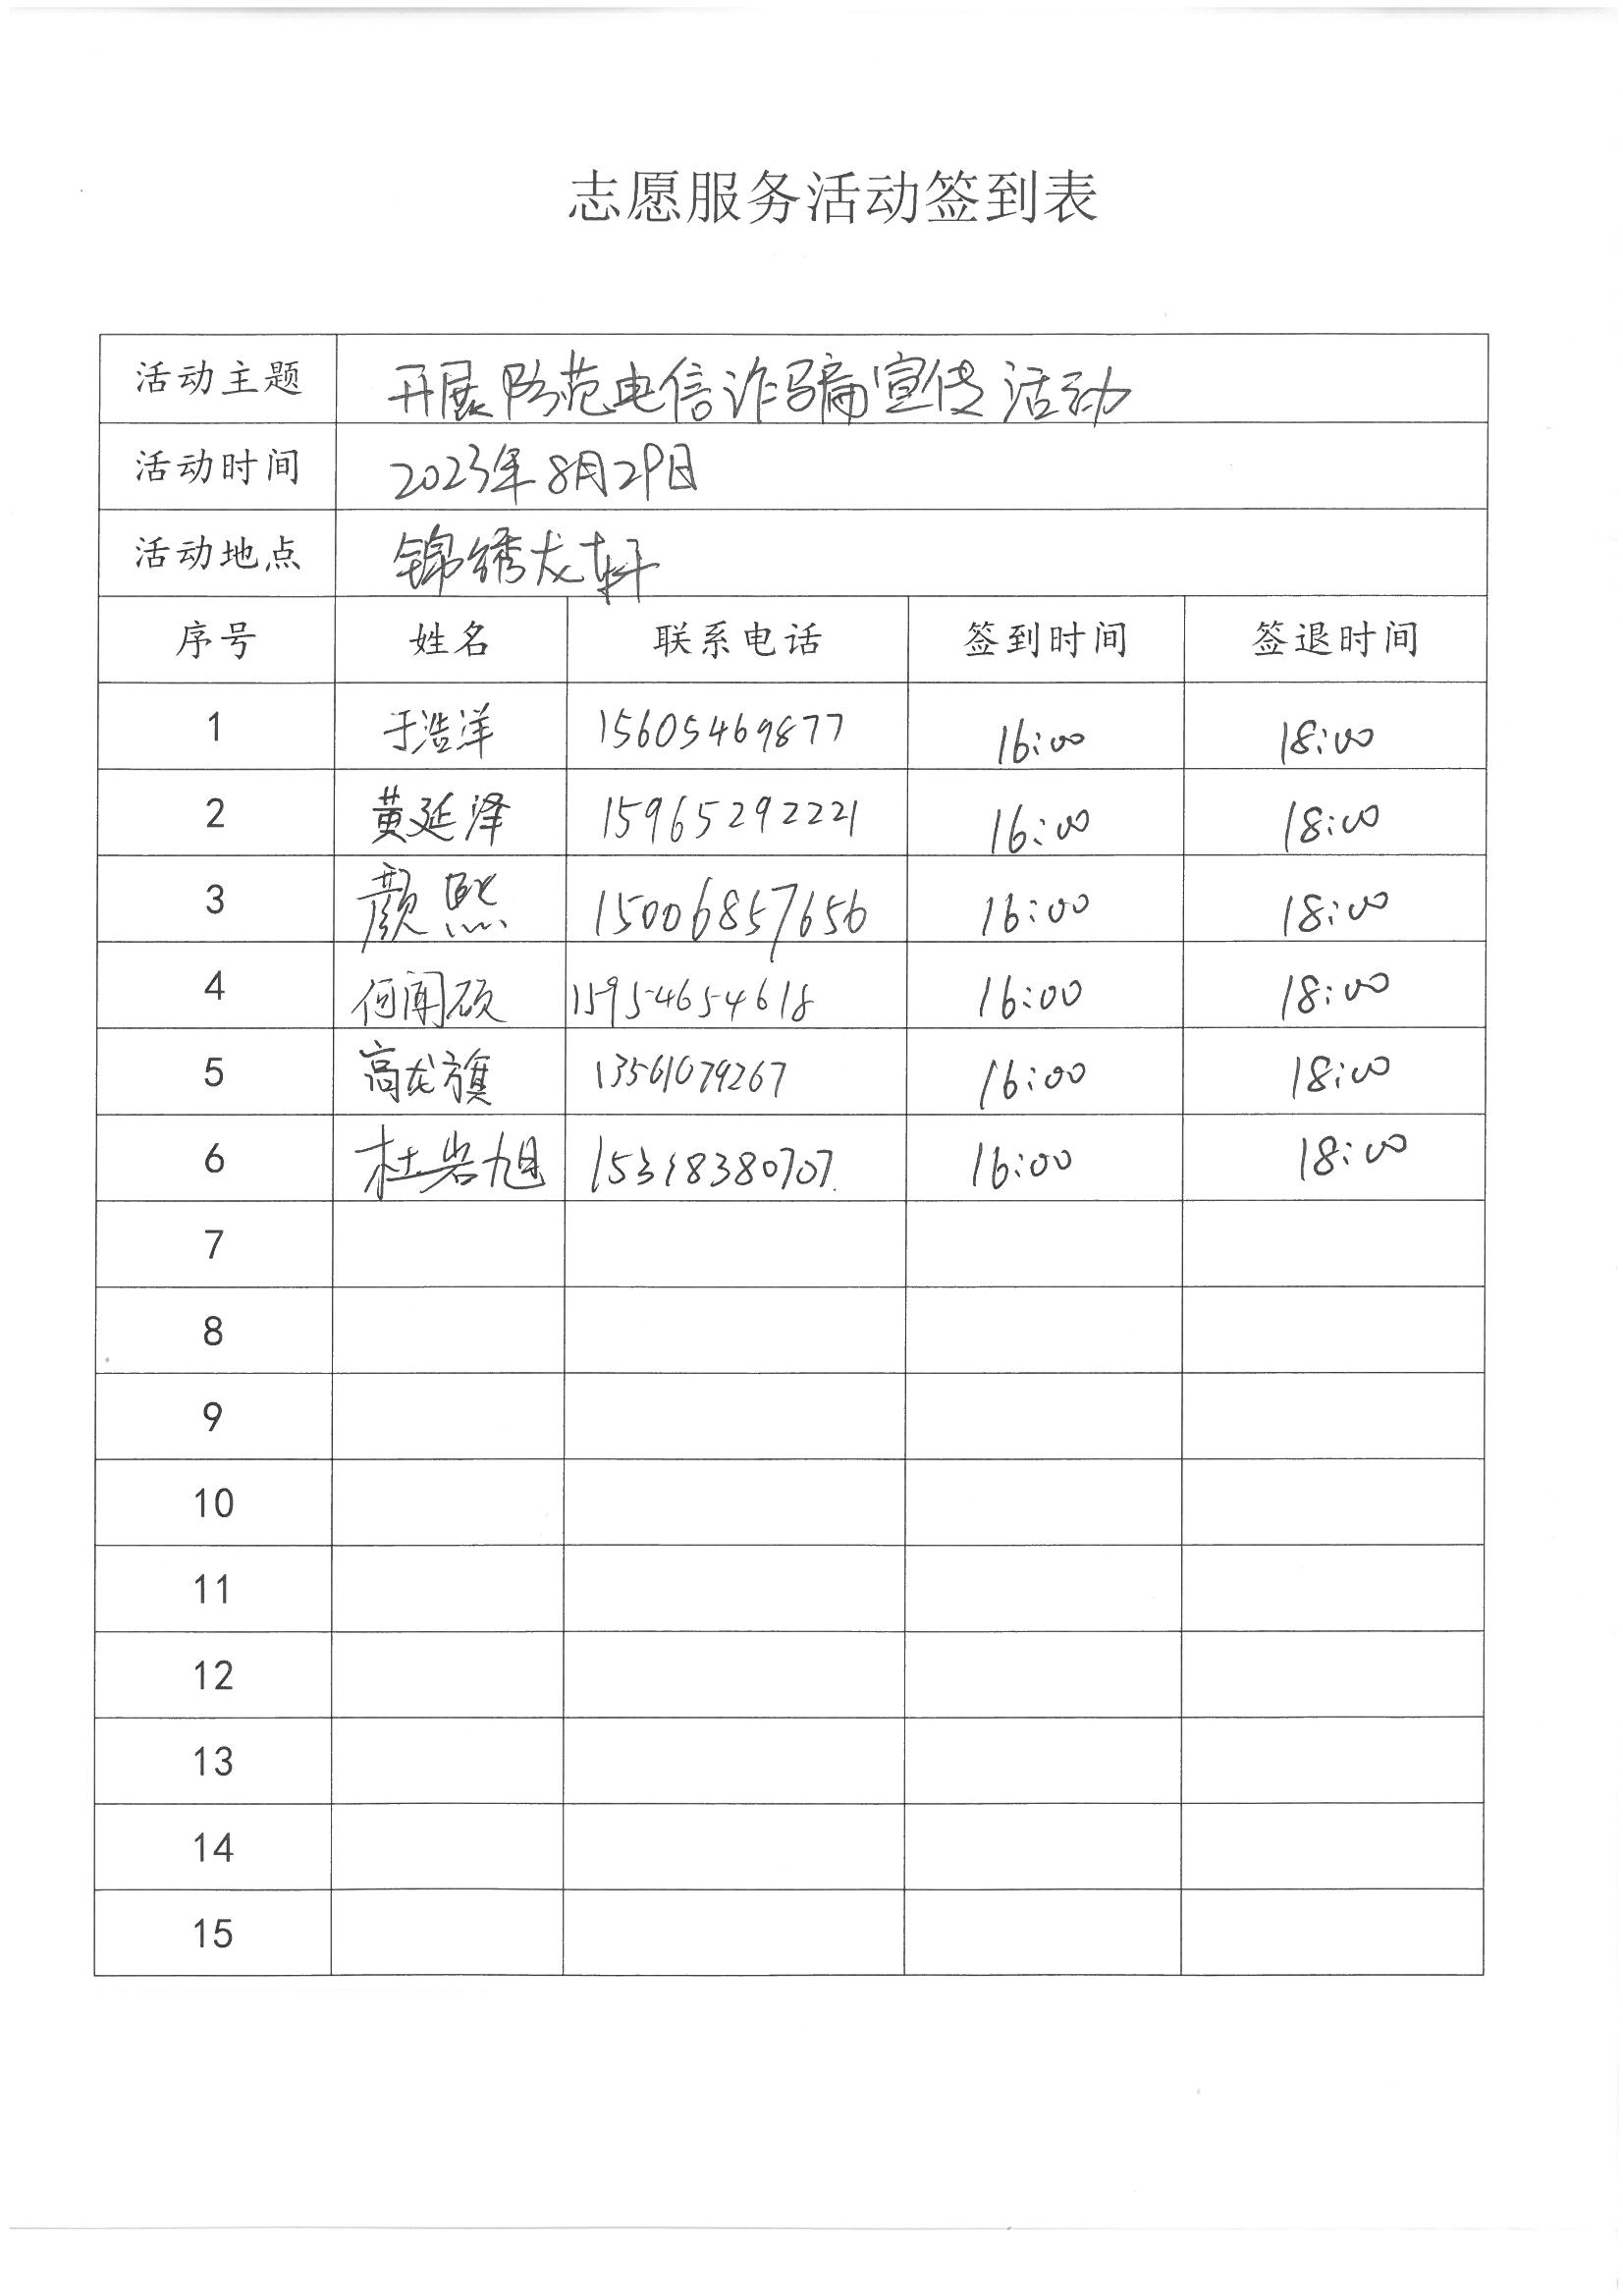 志愿服务活动签到表
活动主题 开展防范电信诈骗宣传活动
活动时间 2023年8月29日
活动地点 锦绣龙轩
序号 姓名 联系电话 签到时间 签退时间
1 于浩洋 15605469877 16:00 18:00
2 黄延泽 15965292221 16:00 18:00
3 颜熙 15006857656 16:00 18:00
4 何闻硕 15954654618 16:00 18:00
5 高龙旗 13561079267 16:00 18:00
6 杜岩旭 15318380707 16:00 18:00
7
8
9
10
11
12
13
14
15